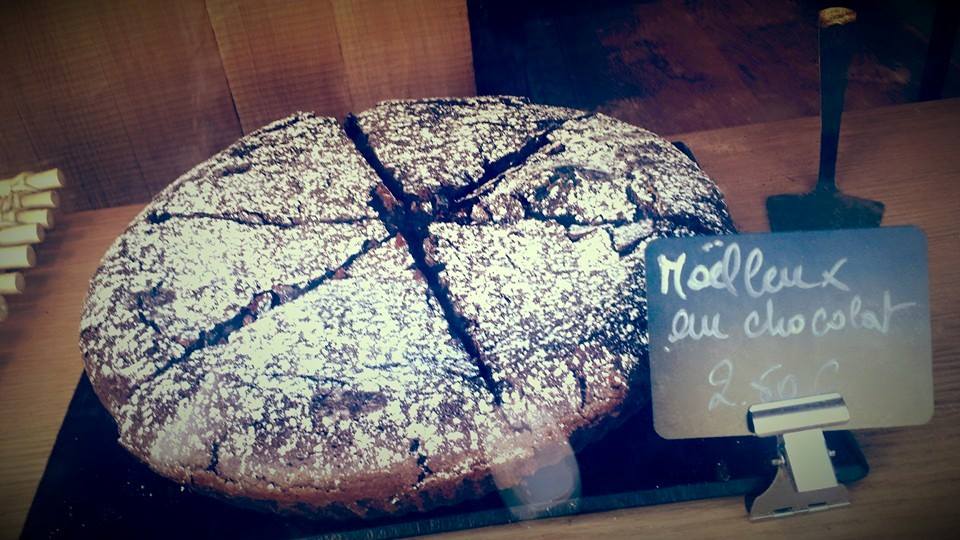 Moëlleux
au chocolat
2.50 €